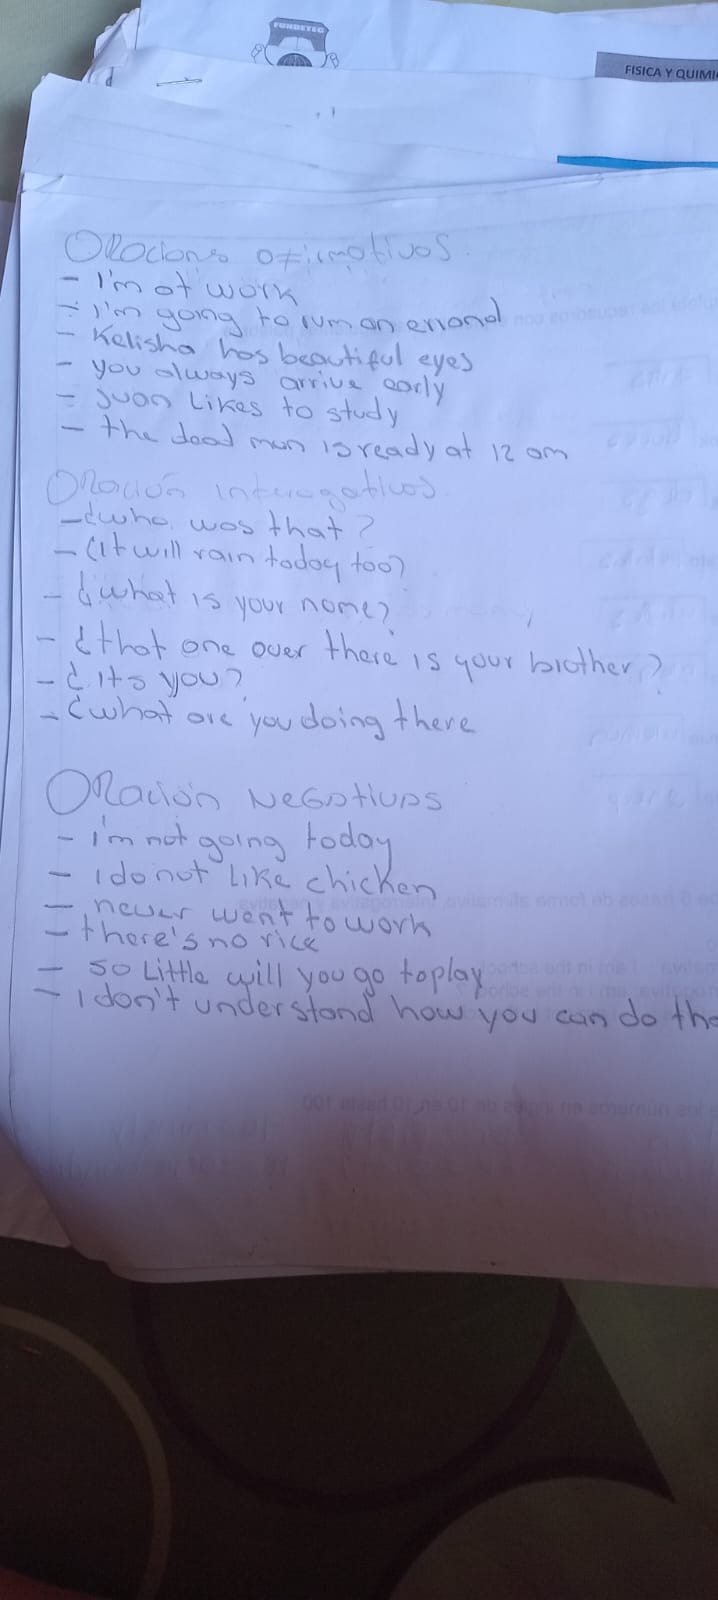 FUNDETEC
FISICA Y QUIMI
Oraciones afirmativas.
- I'm at work
- I'm going to rum an errand
- Kelisha has beautiful eyes
- you always arrive early
- juan Likes to study
- the dead man is ready at 12 am
Oración interrogativas.
- ¿who was that?
- ¿it will rain today too?
- ¿what is your name?
- ¿that one over there is your brother?
- ¿its you?
- ¿what are you doing there
Oración Negativas
- i'm not going today
- I do not Like chicken
- never went to work
- there's no rice
- so Little will you go to play
- I don't understand how you can do tha